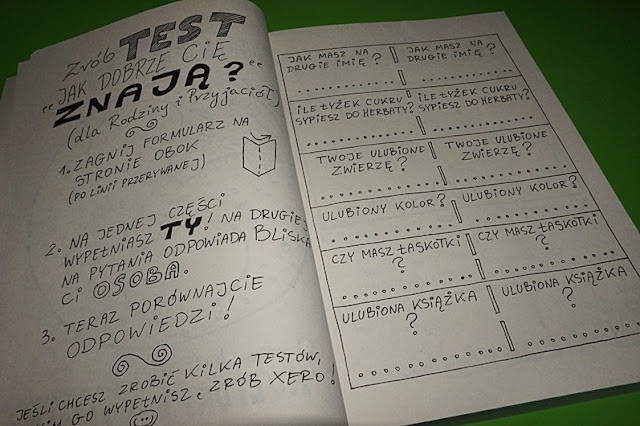 Zrób TEST
„JAK DOBRZE CIĘ
ZNAJĄ?“
(dla Rodziny i Przyjaciół)
1. ZAGNIJ FORMULARZ NA
STRONIE OBOK
(PO LINII PRZERYWANEJ)
2. NA JEDNEJ CZĘŚCI
WYPEŁNIASZ TY! NA DRUGIEJ
NA PYTANIA ODPOWIADA BLISKA
CI OSOBA.
3. TERAZ PORÓWNAJCIE
ODPOWIEDZI!
JEŚLI CHCESZ ZROBIĆ KILKA TESTÓW,
GO WYPEŁNISZ, ZRÓB XERO!
JAK MASZ NA
DRUGIE IMIĘ?
JAK MASZ NA
DRUGIE IMIĘ?
ILE ŁYŻEK CUKRU
SYPIESZ DO HERBATY?
ILE ŁYŻEK CUKRU
SYPIESZ DO HERBATY?
TWOJE ULUBIONE
ZWIERZĘ?
TWOJE ULUBIONE
ZWIERZĘ?
ULUBIONY KOLOR?
ULUBIONY KOLOR?
CZY MASZ ŁASKOTKI
?
CZY MASZ ŁASKOTKI
?
ULUBIONA KSIĄŻKA
?
ULUBIONA KSIĄŻKA
?